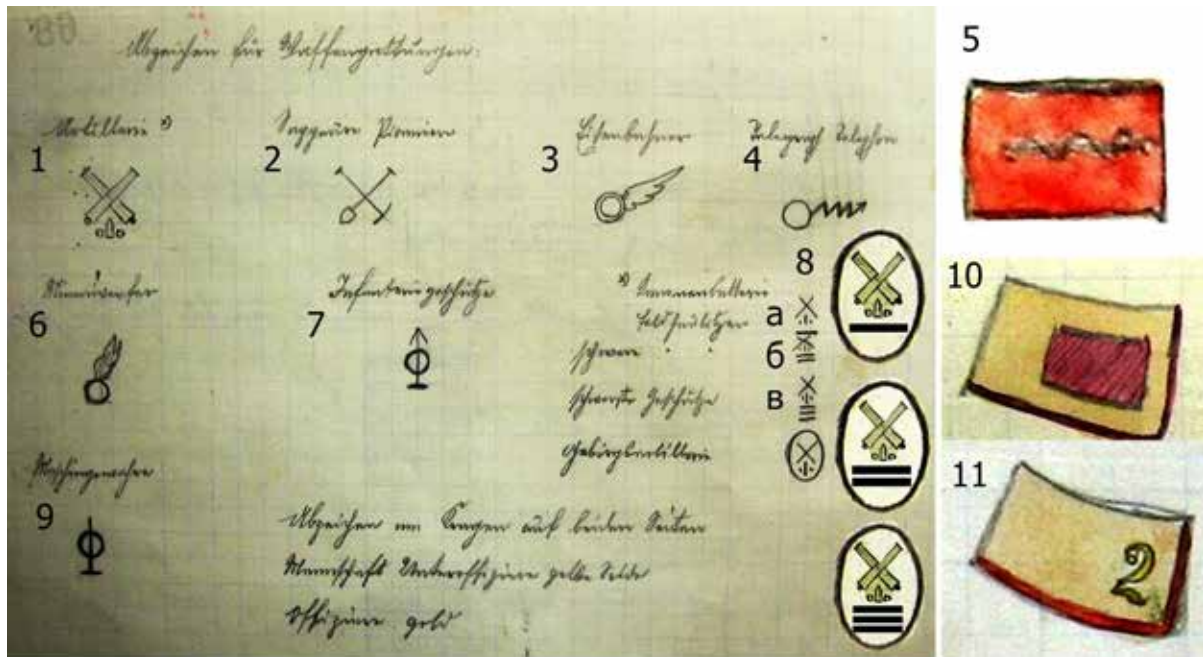 68
Abzeichen für Waffengattungen:
Artillerie x)
Sappeure Pioniere
Eisenbahner
Telegraph Telephon
1
2
3
4
5
Minenwerfer
Infanteriegeschütze
x) Kanonenbatterie
Feldhaubitzen
6
7
8
а
schwere " "
б
schwerste Geschütze
в
Gebirgsartillerie
Maschingewehre
9
Abzeichen am Kragen auf beiden Seiten
Mannschaft Unteroffiziere gelbe Seide
Offiziere gold
10
11
2